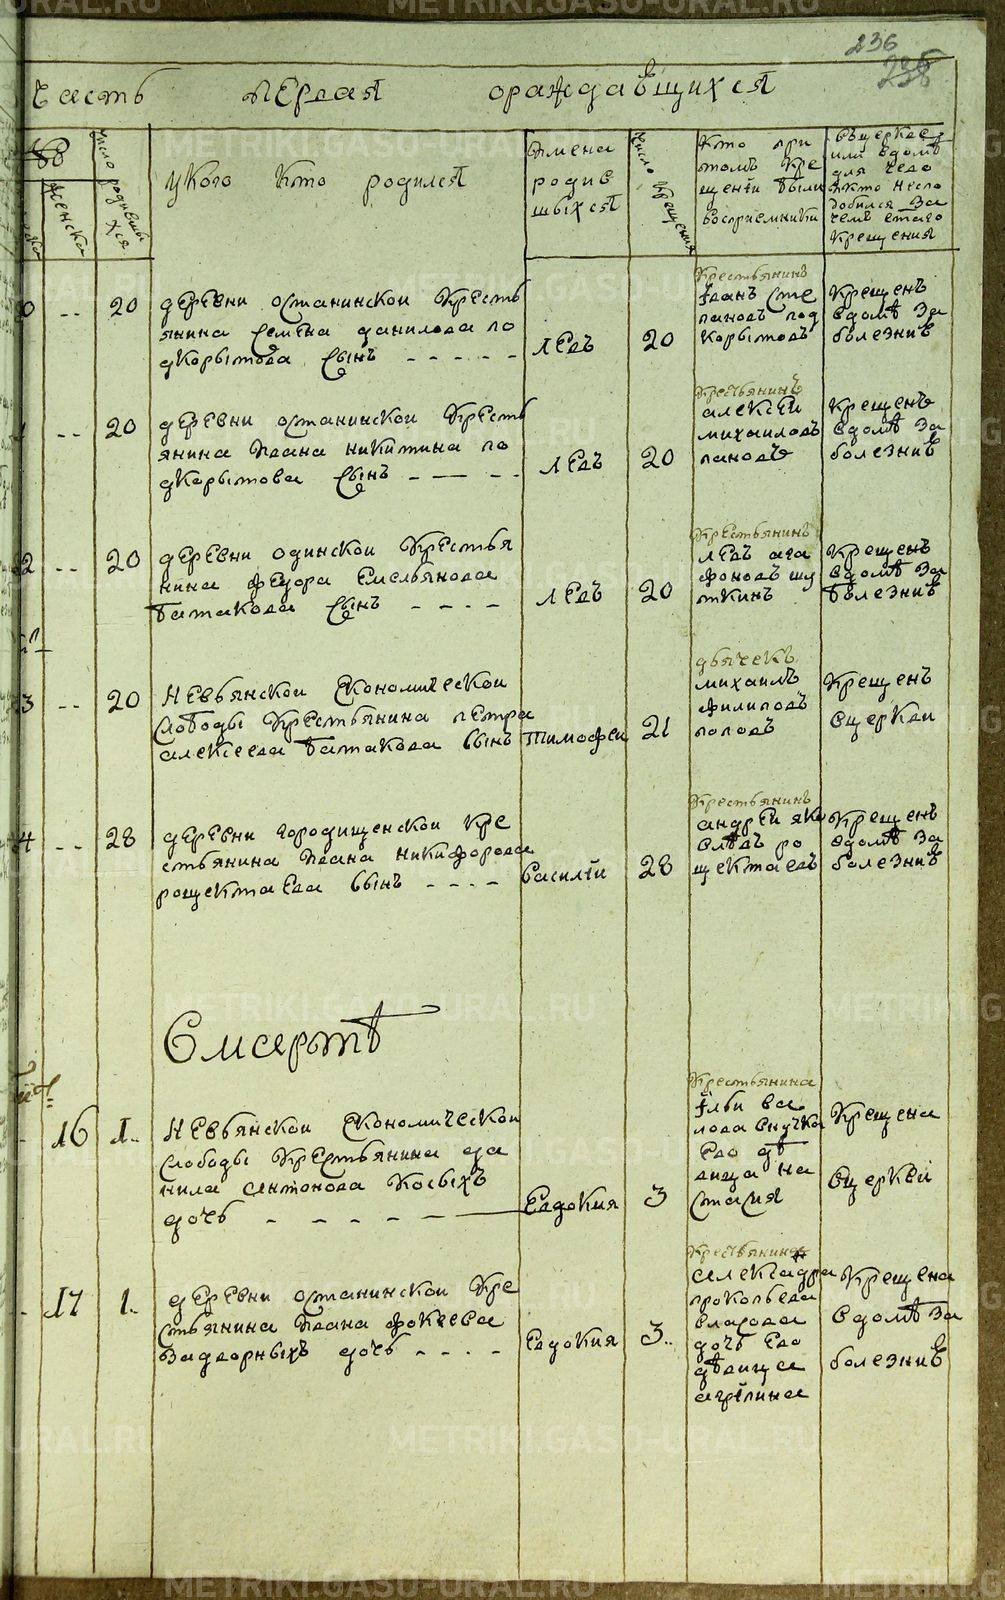 236
Часть первая ораждавщихся
женска
число родивши
хся
укого кто родился
Имена
родив
шыхся
число крещения
кто при
томъ кре
щенïи были
восприемники
въцеркве
или вдомѣ
для чего
икто неспо
добился за
чемъ етаго
крещения
20 деревни останинскои кресть
янина семена данилова по
дкорытова сынъ - - - - -
левъ
20
крестьянинъ
ïванъ сте
пановъ под
корытовъ
крещенъ
вдомѣ за
болезнию
20 деревни останинскои кресть
янина ивана никитина по
дкорытова сынъ - - - - -
левъ
20
крестьянинъ
алексеи
михаиловъ
пановъ
крещенъ
вдомѣ за
болезнию
20 деревни одинскои крестья
нина федора емельянова
батакова сынъ - - - -
левъ
20
крестьянинъ
левъ ага
фоновъ шу
ткинъ
крещенъ
вдомѣ за
болезнию
3 -- 20 невьянскои економическои
слободы крестьянина петра
алексеева батакова сынъ
тимофеи
21
дьячекъ
михаилъ
филиповъ
поповъ
крещенъ
вцеркви
4 -- 28 деревни городищенскои кре
стьянина ивана никифорова
рощектаева сынъ - - - -
василïи
28
крестьянинъ
андреи яко
влевъ ро
щектаевъ
крещенъ
вдомѣ за
болезнию
Вмсертѣ
16 1.. невьянскои економическои
слободы крестьянина да
нила антонова косыхъ
дочь - - - - - -
евдокия
3
крестьянина
ïльи ва
лова внучка
ево дѣ
вица на
стасия
крещена
вцеркви
17 1.. деревни останинскои кре
стьянина ивана фокеева
задворныхъ дочь - - - -
евдокия
3..
крестьянина
александра
прокопьева
дочь ево
дѣвица
агрïпина
крещена
вдомѣ за
болезнию
METRIKI.GASO-URAL.RU